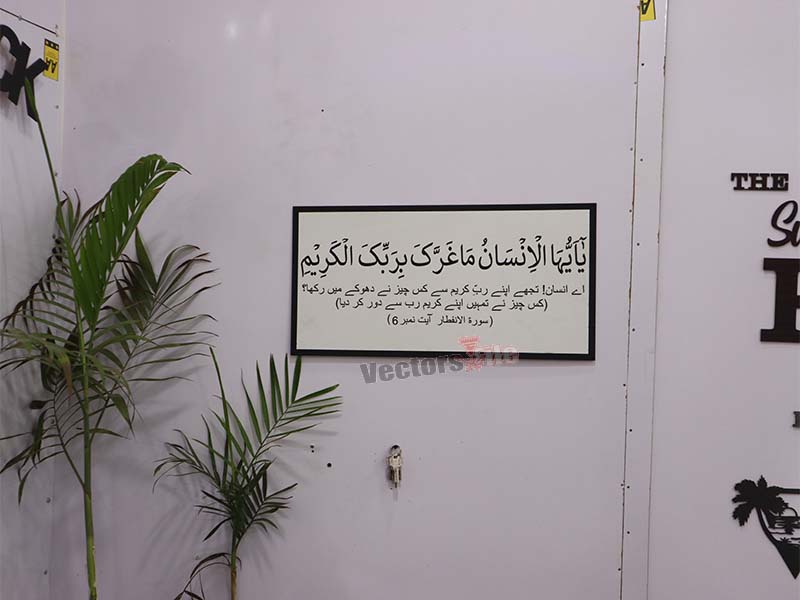 CK
THE
يٰۤاَيُّهَا الْاِنْسَانُ مَا غَرَّكَ بِرَبِّكَ الْكَرِيْمِ
اے انسان! تجھے اپنے ربّ کریم سے کس چیز نے دھوکے میں رکھا؟
(کس چیز نے تمہیں اپنے کریم رب سے دور کر دیا)
(سورۃ الانفطار آیت نمبر 6)